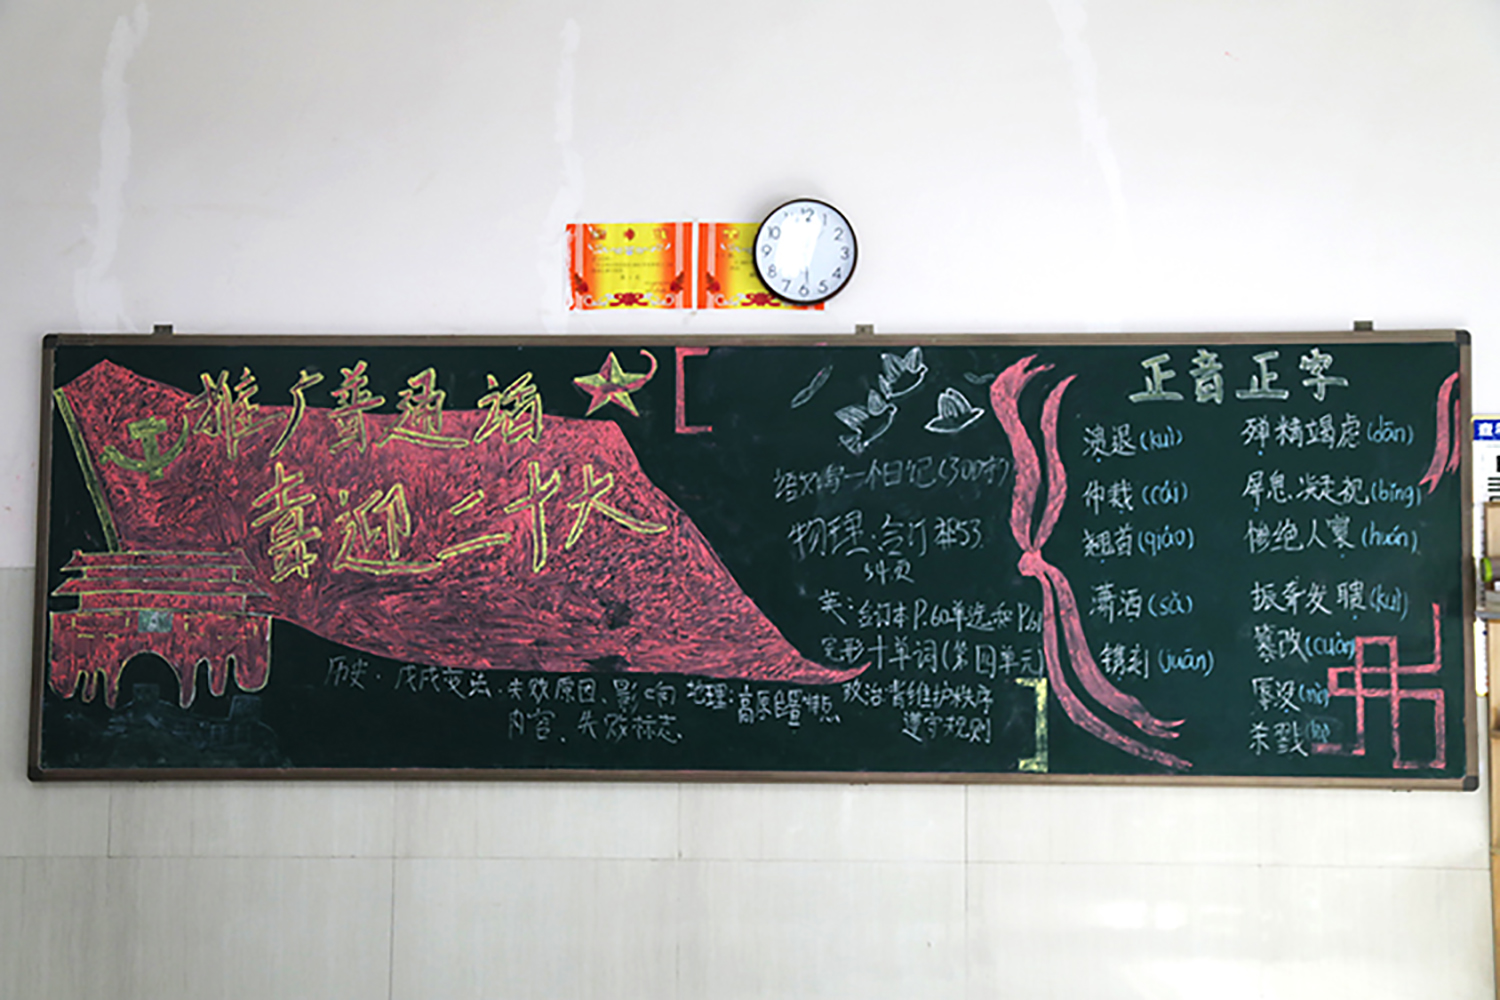 推广普通话
喜迎二十大
语文:写一个日记(300字)
物理:合订本53
54页
英:合订本P.60单选和P.61
完形十单词(第四单元)
历史:戊戌变法.失败原因、影响
内容、失败标志
地理:高原位置特点
政治:背维护秩序
遵守规则
正音正字
溃退(kuì)
仲裁(cái)
翘首(qiáo)
潇洒(sǎ)
镌刻(juān)
殚精竭虑(dān)
屏息凝视(bǐng)
惨绝人寰(huán)
振聋发聩(kuì)
篡改(cuàn)
杀戮(lù)
12
1
2
3
4
5
6
7
8
9
10